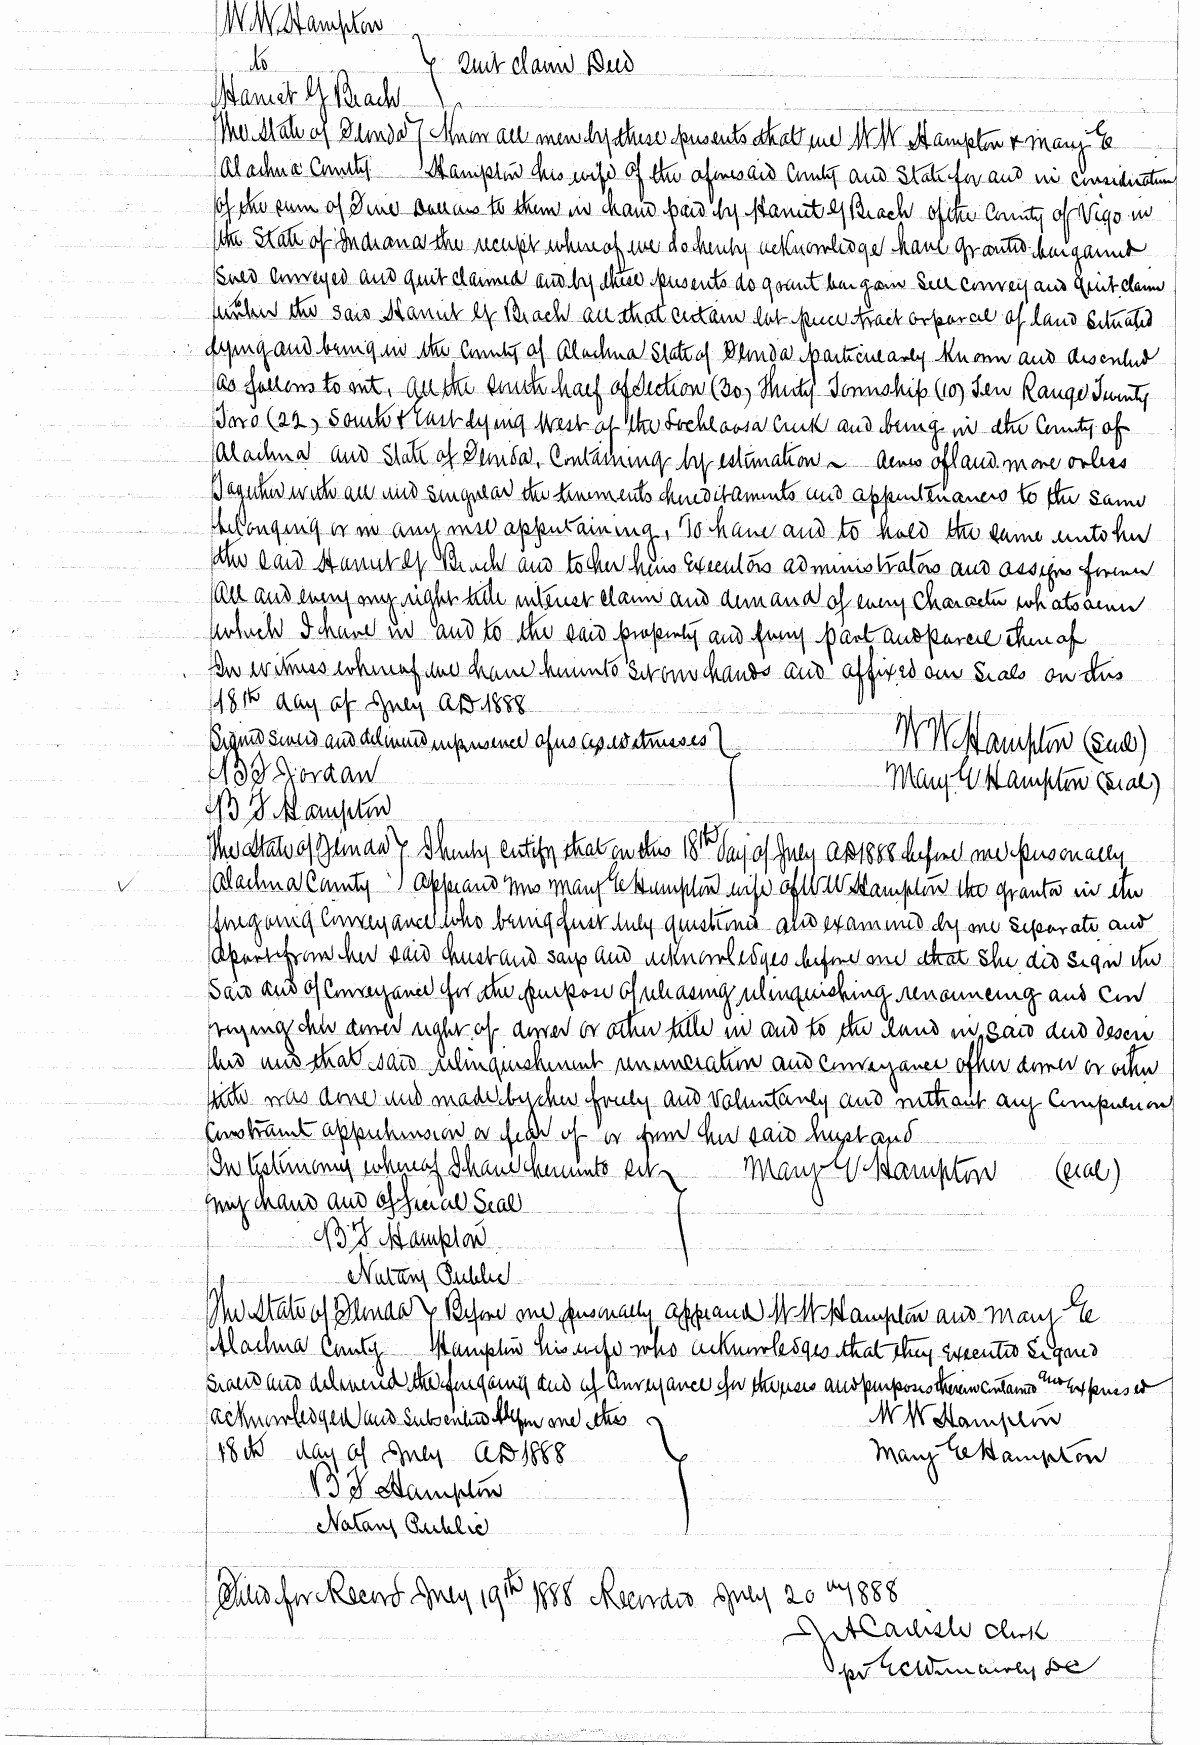 W W Hampton
to } Quit claim Deed
Harriet G Beach
The State of Florida } Know all men by these presents that we W W Hampton & Mary E
Alachua County Hampton his wife of the aforesaid County and State for and in consideration
of the sum of Five Dollars to them in hand paid by Harriet G Beach of the County of Vigo in
the State of Indiana the receipt whereof we do hereby acknowledge have granted bargained
Sold conveyed and quit claimed and by these presents do grant bargain Sell convey and quit claim
unto the said Harriet G Beach all that certain lot piece tract or parcel of land Situated
lying and being in the County of Alachua State of Florida particularly known and described
as follows to wit, all the South half of Section (30) Thirty Township (10) Ten Range Twenty
Two (22) South & East lying West of the Lochloosa Creek and being in the County of
Alachua and State of Florida, Containing by estimation ~ Acres of land more or less
Together with all and singular the tenements hereditaments and appurtenances to the same
belonging or in any wise appertaining, To have and to hold the same unto her
the said Harriet G Beach and to her heirs Executors administrators and assigns forever
All and every my right title interest claim and demand of every Character whatsoever
which I have in and to the said property and Every part and parcel thereof
In witness whereof we have hereunto Set our hands and affixed our Seals on this
18th day of July AD 1888
Signed Sealed and delivered in presence of us as witnesses } W W Hampton (Seal)
B F Jordan Mary E Hampton (Seal)
B F Hampton
The State of Florida } I hereby certify that on this 18th Day of July AD 1888 before me personally
Alachua County } appeared Mrs Mary E Hampton wife of W W Hampton the grantor in the
foregoing Conveyance who being first duly questioned and examined by me Separate and
Apart from her said husband says and acknowledges before me that She did Sign the
Said deed of Conveyance for the purpose of releasing relinquishing renouncing and Con
veying her dower right of dower or other title in and to the land in said deed descri
bed and that said relinquishment renunciation and conveyance of her dower or other
title was done and made by her freely and Voluntarily and without any Compulsion
Constraint apprehension or fear of or from her said husband
In testimony whereof I have hereunto set } Mary E Hampton (Seal)
my hand and official Seal
B F Hampton
Notary Public
The State of Florida } Before me personally appeared W W Hampton and Mary E
Alachua County Hampton his wife who acknowledges that they Executed Signed
Sealed and delivered the foregoing deed of Conveyance for the uses and purposes therein Contained and Expressed
acknowledged and Subscribed before me this } W W Hampton
18th day of July AD 1888 Mary E Hampton
B F Hampton
Notary Public
Filed for Record July 19th 1888 Recorded July 20 1888
J A Carlisle Clerk
pr DC